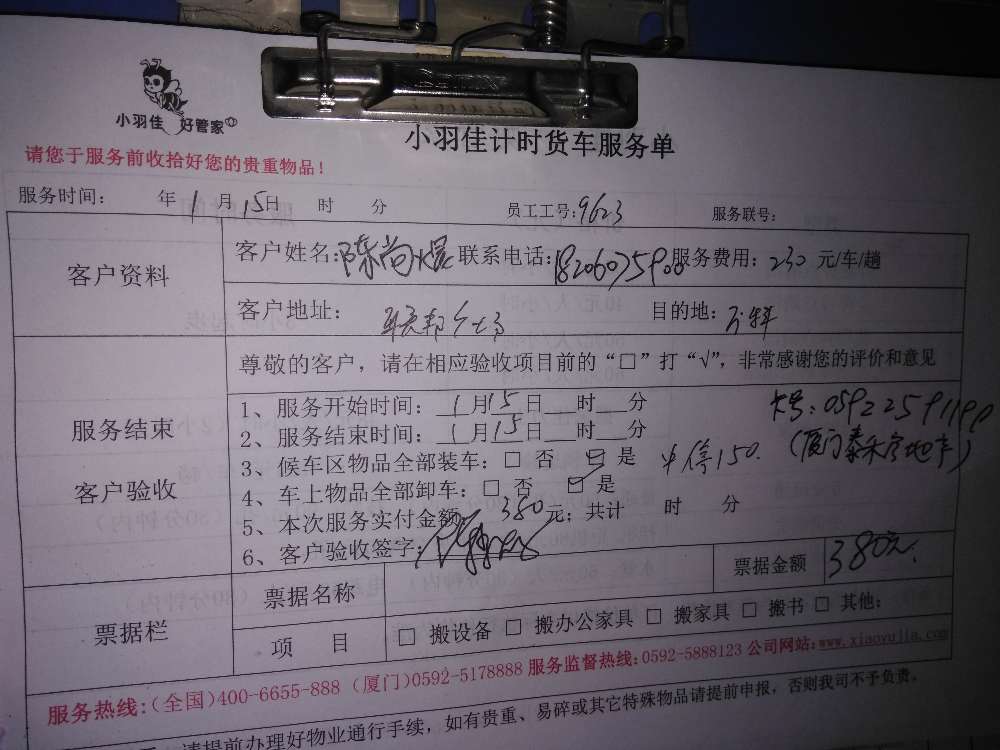 小羽佳 好管家
小羽佳计时货车服务单
请您于服务前收拾好您的贵重物品！
服务时间： 年1月15日 时 分 员工工号：9623 服务联号：
客户资料
客户姓名：陈尚 联系电话：18206075900 服务费用：230 元/车/趟
客户地址： 联邦 目的地：万科
尊敬的客户，请在相应验收项目前的“□”打“√”，非常感谢您的评价和意见
服务结束
客户验收
1、服务开始时间：1月15日 时 分
2、服务结束时间：1月15日 时 分
卡号：05922591190
3、候车区物品全部装车：□ 否 ☑ 是 中停150. （厦门泰禾房地产）
4、车上物品全部卸车：□ 否 ☑ 是
5、本次服务实付金额：380元；共计 时 分
6、客户验收签字：
票据栏
票据名称 票据金额 380元.
项 目 □ 搬设备 □ 搬办公家具 □ 搬家具 □ 搬书 □ 其他：
服务热线：(全国)400-6655-888 (厦门)0592-5178888 服务监督热线：0592-5888123 公司网站：www.xiaoyujia.com
请提前办理好物业通行手续，如有贵重、易碎或其它特殊物品请提前申报，否则我司不予负责。